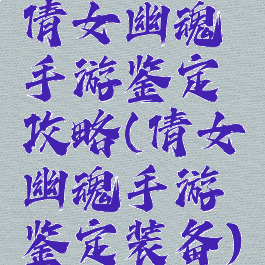 倩女幽魂
手游鉴定
攻略(倩女
幽魂手游
鉴定装备)